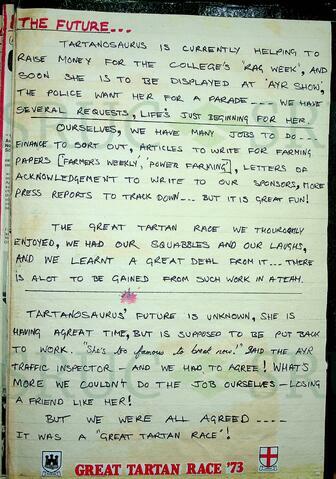 THE FUTURE...
TARTANOSAURUS IS CURRENTLY HELPING TO
RAISE MONEY FOR THE COLLEGE'S 'RAG WEEK', AND
SOON SHE IS TO BE DISPLAYED AT 'AYR SHOW',
THE POLICE WANT HER FOR A PARADE---- WE HAVE
SEVERAL REQUESTS, LIFE'S JUST BEGINNING FOR HER.
OURSELVES, WE HAVE MANY JOBS TO DO...
FINANCE TO SORT OUT, ARTICLES TO WRITE FOR FARMING
PAPERS [FARMER'S WEEKLY, 'POWER FARMING'], LETTERS OF
ACKNOWLEDGEMENT TO WRITE TO OUR SPONSORS, MORE
PRESS REPORTS TO TRACK DOWN--- BUT IT IS GREAT FUN!
THE GREAT TARTAN RACE WE THOUROUGHLY
ENJOYED, WE HAD OUR SQUABBLES AND OUR LAUGHS,
AND WE LEARNT A GREAT DEAL FROM IT... THERE
IS ALOT TO BE GAINED FROM SUCH WORK IN A TEAM.
TARTANOSAURUS' FUTURE IS UNKNOWN, SHE IS
HAVING A GREAT TIME, BUT IS SUPPOSED TO BE PUT BACK
TO WORK. "She's too famous to break now!" SAID THE AYR
TRAFFIC INSPECTOR - AND WE HAD TO AGREE! WHAT'S
MORE WE COULDN'T DO THE JOB OURSELVES - LOSING
A FRIEND LIKE HER!
BUT WE WERE ALL AGREED ----
IT WAS A "GREAT TARTAN RACE"!
GREAT TARTAN RACE '73